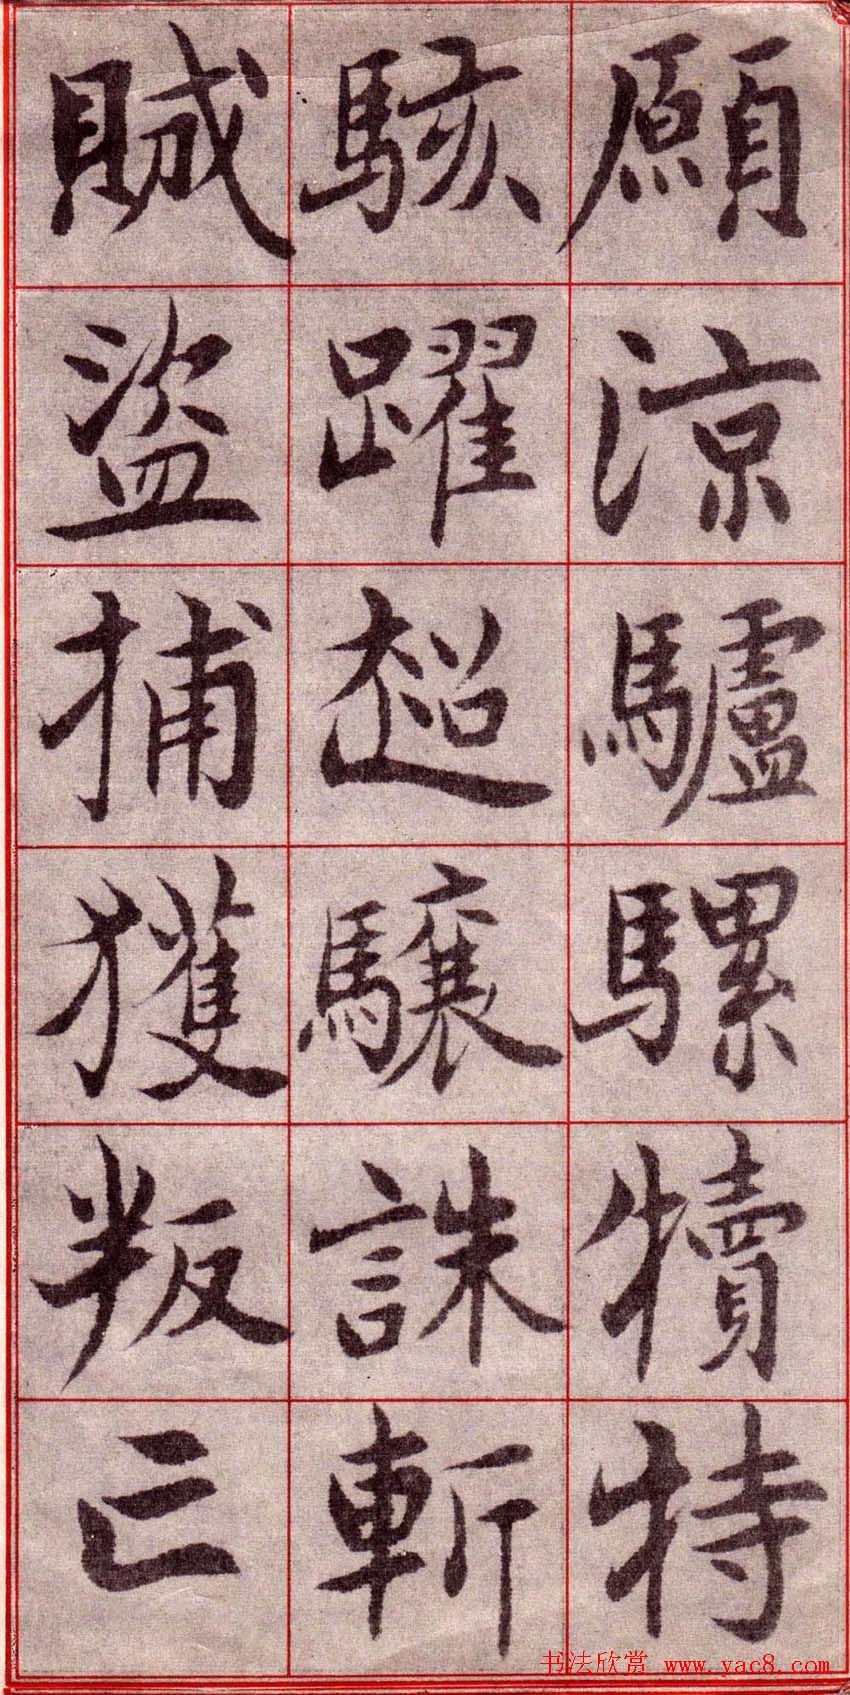 願涼驢騾犢特
駭躍超驤誅斬
賊盜捕獲叛亡
书法欣赏 www.yac8.com